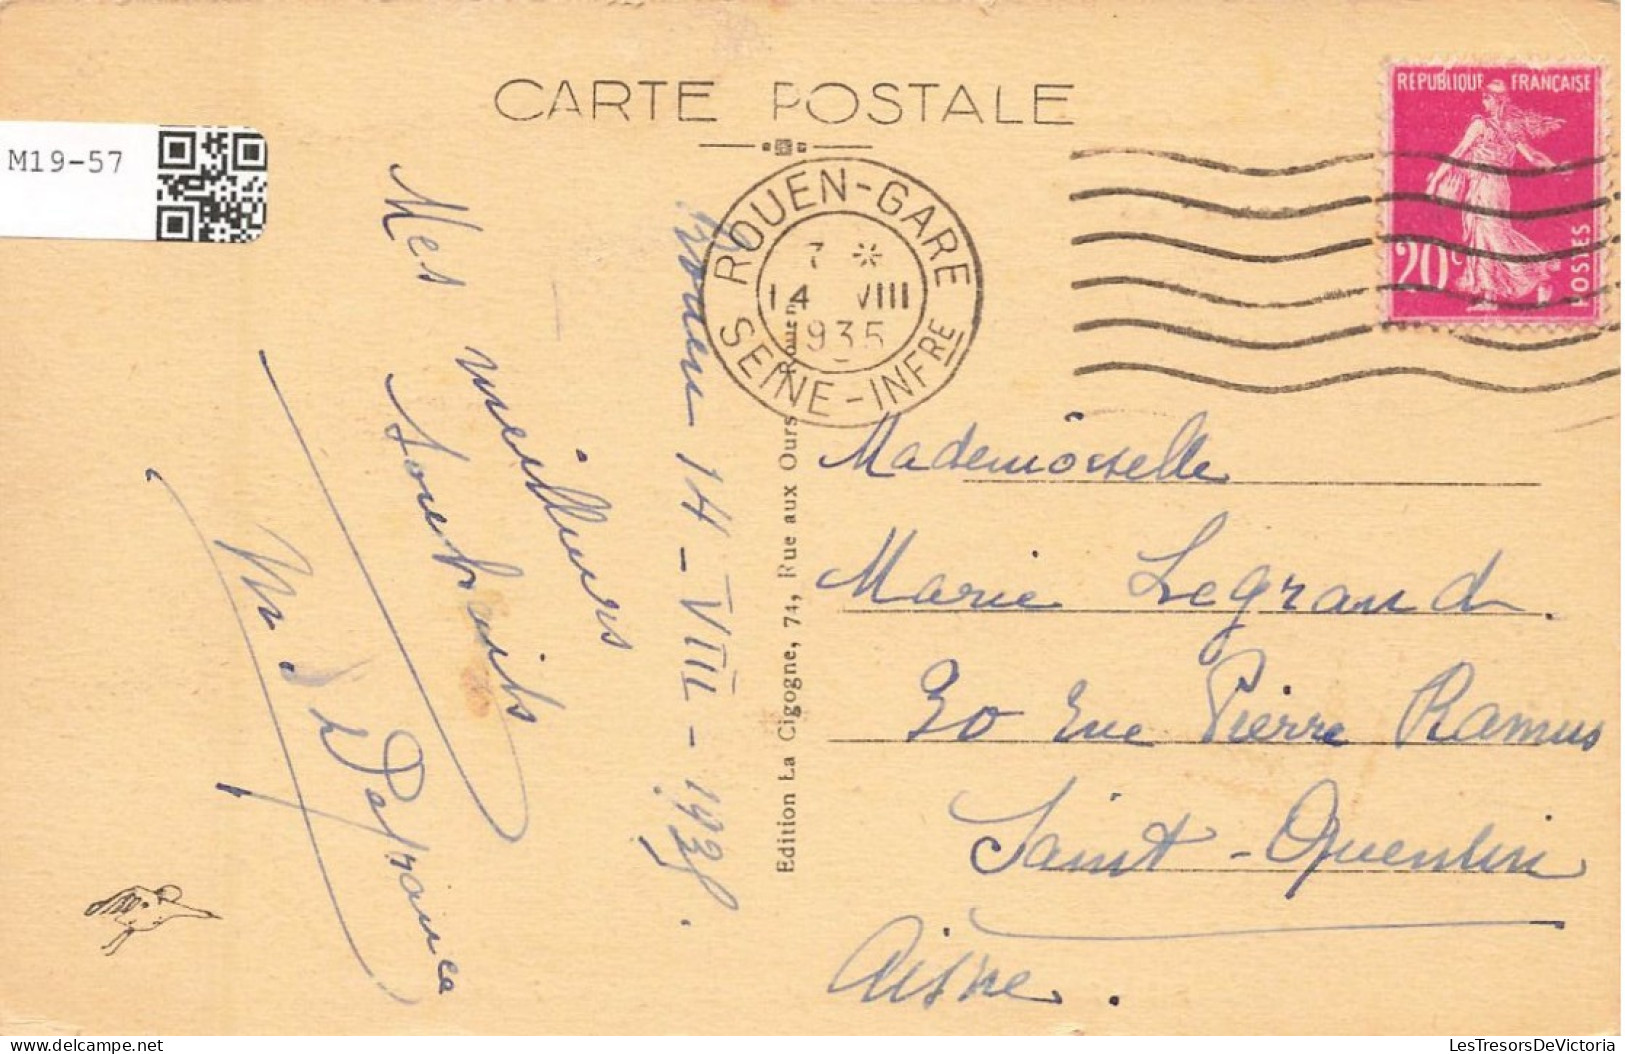 CARTE POSTALE
M19-57
REPUBLIQUE FRANCAISE
20c
POSTES
ROUEN-GARE
7 *
14 VIII
1935
SEINE-INFRE
Rouen 14-VIII-1935.
Mes meilleurs
Souhaits
Edition La Cigogne, 74, Rue aux Ours, Rouen
Mademoiselle
Marie Legrand.
30 rue Pierre Ramus
Saint-Quentin
Aisne.
LesTresorsDeVictoria
delcampe.net